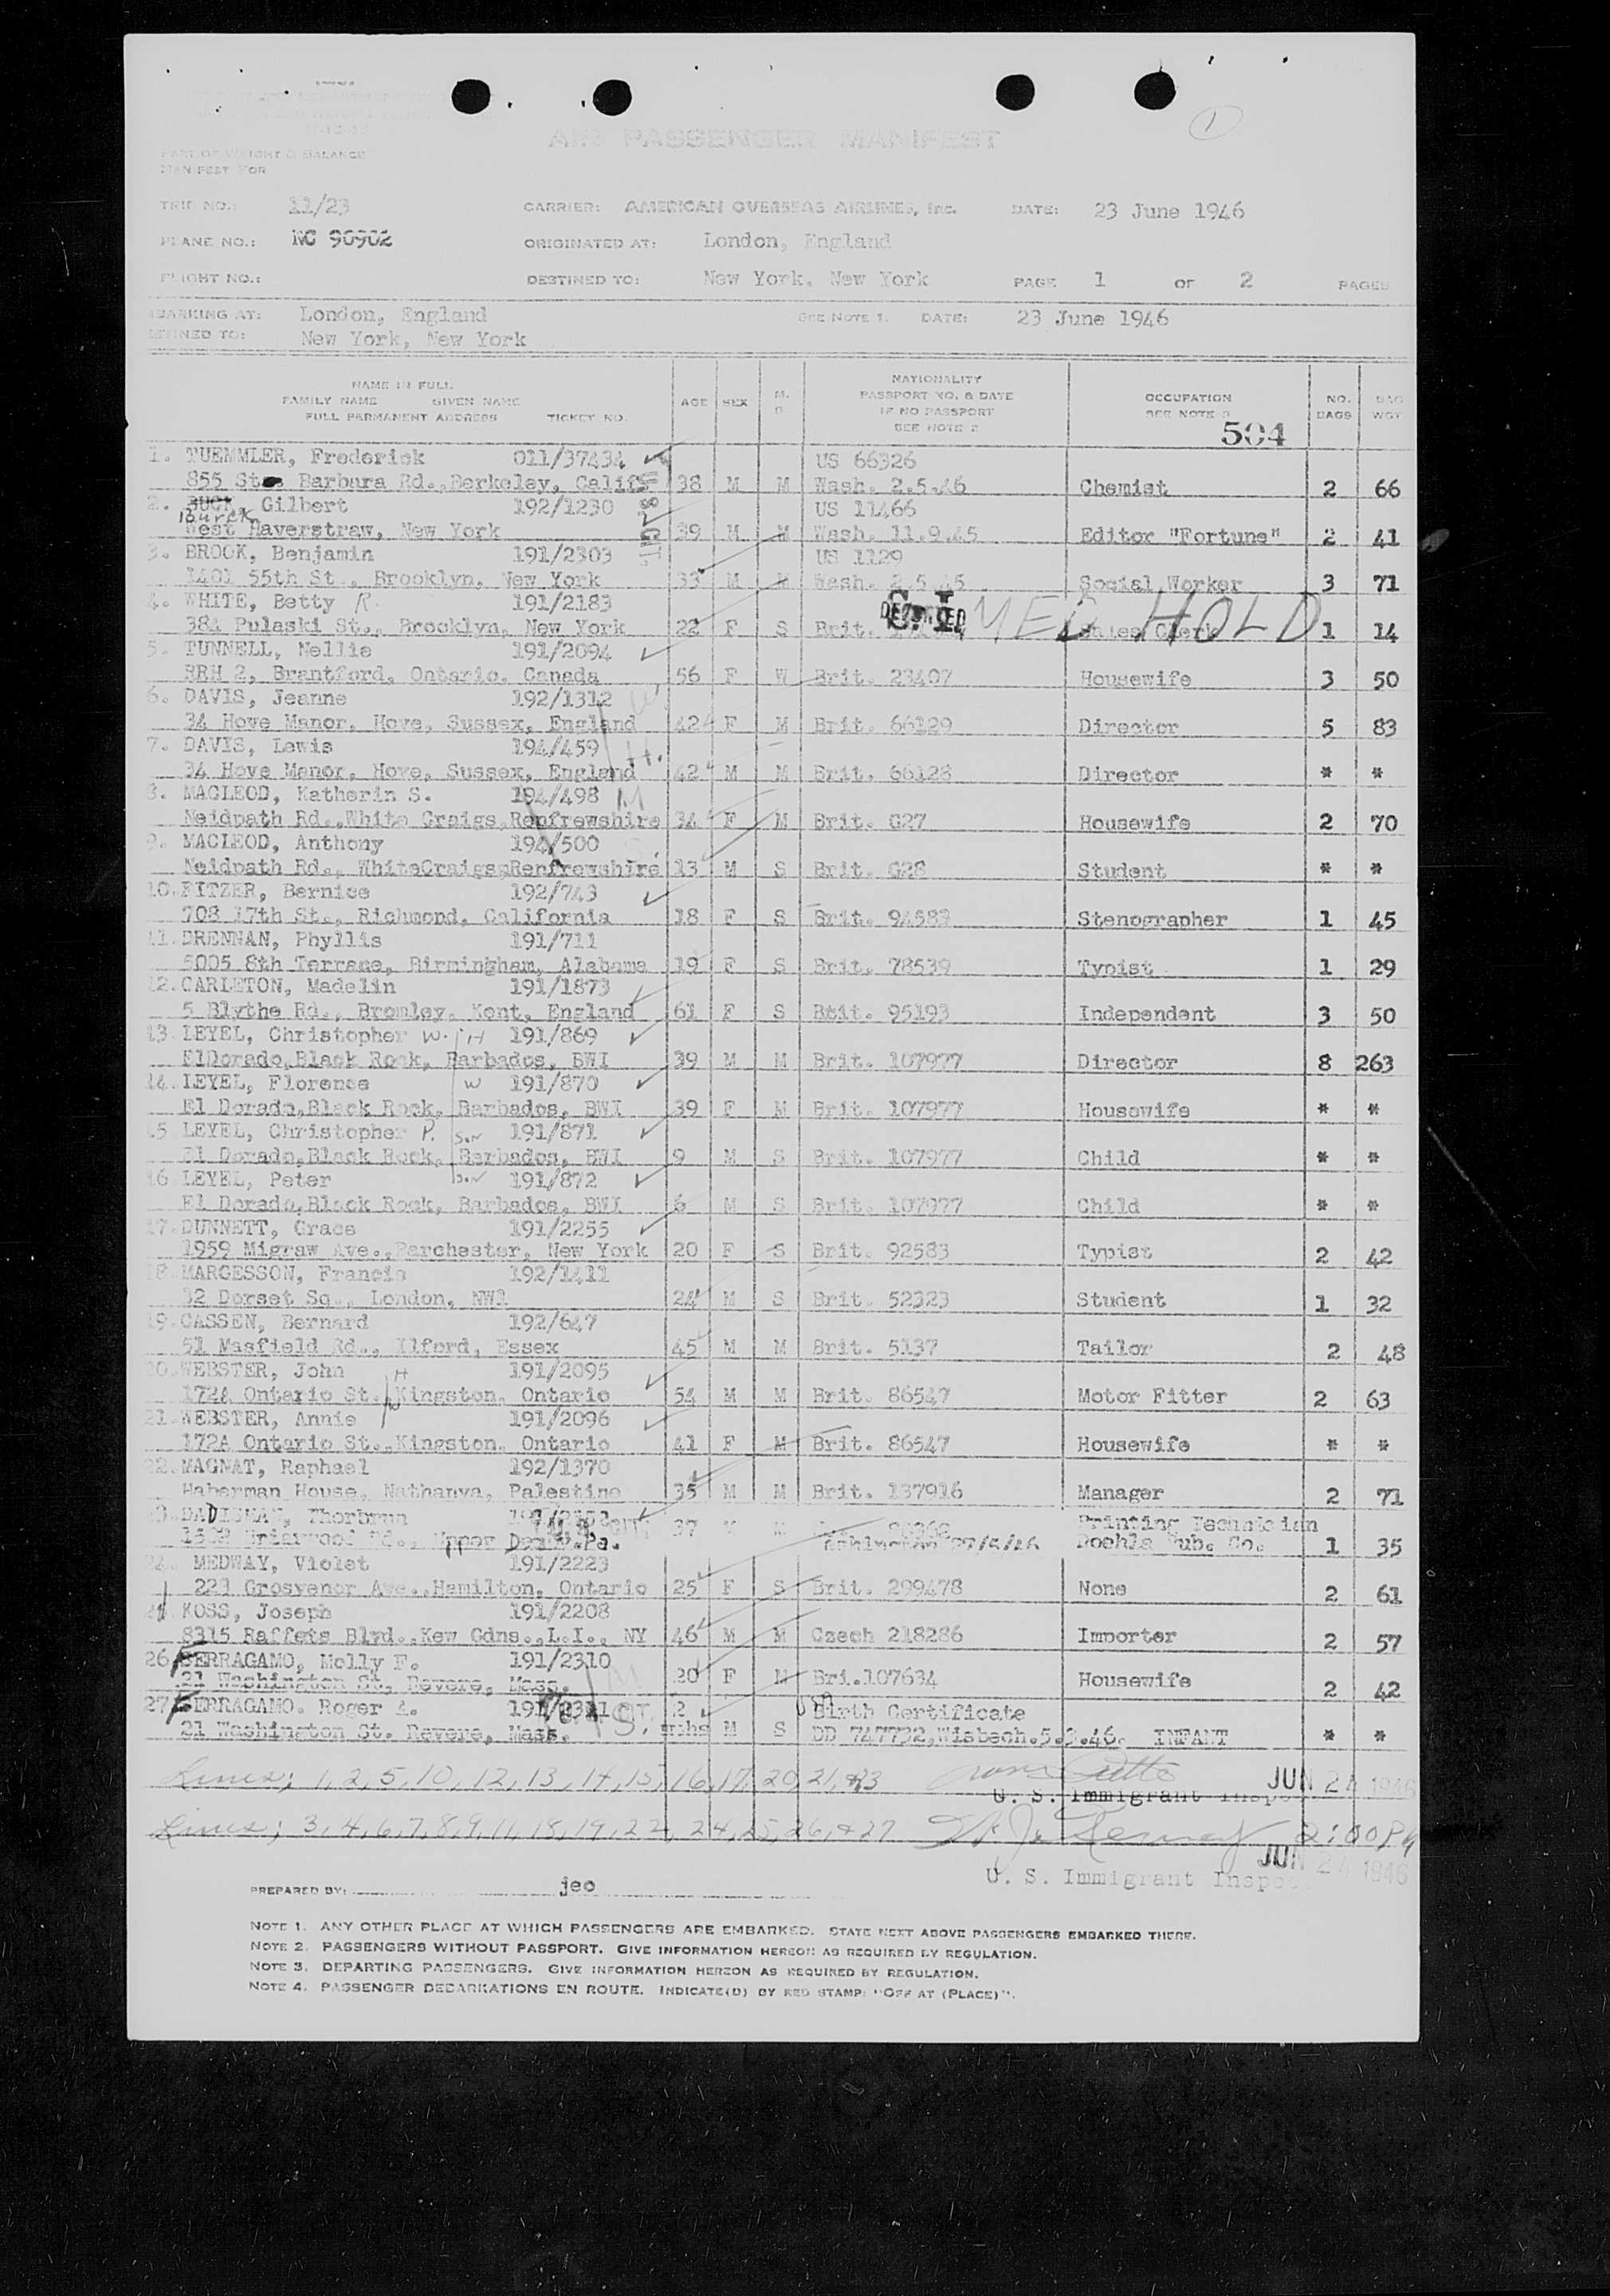 1
AIR PASSENGER MANIFEST
PART OF WEIGHT & BALANCE
MANIFEST FOR
TRIP NO.: 11/23 CARRIER: AMERICAN OVERSEAS AIRLINES, Inc. DATE: 23 June 1946
PLANE NO.: NC 90902 ORIGINATED AT: London, England
FLIGHT NO.: DESTINED TO: New York, New York PAGE 1 OF 2 PAGES
BARKING AT: London, England SEE NOTE 1. DATE: 23 June 1946
STINED TO: New York, New York
NAME IN FULL
FAMILY NAME GIVEN NAME
FULL PERMANENT ADDRESS TICKET NO.
AGE SEX M. S
NATIONALITY
PASSPORT NO. & DATE
IF NO PASSPORT
SEE NOTE 2
OCCUPATION
SEE NOTE 3
NO. BAGS
BAG WGT
504
1. TUEMMLER, Frederick 011/37434 US 66326
855 Sta Barbara Rd., Berkeley, Calif 38 M M Wash. 2.5.46 Chemist 2 66
2. BUCK Gilbert 192/1230 US 11466
Burck
West Haverstraw, New York 39 M M Wash. 11.9.45 Editor "Fortune" 2 41
3. BROOK, Benjamin 191/2303 US 1129
1401 55th St., Brooklyn, New York 33 M M Wash. 2.5.45 Social Worker 3 71
4. WHITE, Betty R. 191/2183 S. I. MED HOLD
384 Pulaski St., Brooklyn, New York 22 F S Brit. Sales Clerk 1 14
5. TUNNELL, Nellie 191/2094
RRH 2, Brantford, Ontario, Canada 56 F W Brit. 23407 Housewife 3 50
6. DAVIS, Jeanne 192/1312 W
34 Hove Manor, Hove, Sussex, England 42 F M Brit. 66129 Director 5 83
7. DAVIS, Lewis 194/459 H.
34 Hove Manor, Hove, Sussex, England 42 M M Brit. 66128 Director * *
8. MACLEOD, Katherin S. 194/498 M
Neidpath Rd., White Craigs, Renfrewshire 34 F M Brit. G27 Housewife 2 70
9. MACLEOD, Anthony 194/500 S.
Neidpath Rd., WhiteCraigs, Renfrewshire 13 M S Brit. G28 Student * *
10. FITZER, Bernice 192/743
708 17th St., Richmond, California 18 F S Brit. 94583 Stenographer 1 45
11. DRENNAN, Phyllis 191/711
5005 8th Terrace, Birmingham, Alabama 19 F S Brit. 78539 Typist 1 29
12. CARLETON, Madelin 191/1873
5 Blythe Rd., Bromley, Kent, England 61 F S Brit. 95193 Independent 3 50
13. LEYEL, Christopher W. H 191/869
ElDorado, Black Rock, Barbados, BWI 39 M M Brit. 107977 Director 8 263
14. LEYEL, Florence W 191/870
El Dorado, Black Rock, Barbados, BWI 39 F M Brit. 107977 Housewife * *
15 LEYEL, Christopher P. Son 191/871
El Dorado, Black Rock, Barbados, BWI 9 M S Brit. 107977 Child * *
16. LEYEL, Peter Son 191/872
El Dorado, Black Rock, Barbados, BWI 6 M S Brit. 107977 Child * *
17. DUNNETT, Grace 191/2255
1959 Migraw Ave., Parchester, New York 20 F S Brit. 92583 Typist 2 42
18. MARGESSON, Francis 192/1411
32 Dorset Sq., London, NW1 24 M S Brit. 52323 Student 1 32
19. CASSEN, Bernard 192/647
51 Masfield Rd., Ilford, Essex 45 M M Brit. 5137 Tailor 2 48
20. WEBSTER, John H 191/2095
172A Ontario St., Kingston, Ontario 54 M M Brit. 86547 Motor Fitter 2 63
21. WEBSTER, Annie W 191/2096
172A Ontario St., Kingston, Ontario 41 F M Brit. 86547 Housewife * *
22. MAGNAT, Raphael 192/1370
Haberman House, Nathanya, Palestine 35 M M Brit. 137916 Manager 2 71
23. Thorbrun Printing Technician
1502 Briarwood Rd., Upper Darby, Pa. 37 M M Washington 27/5/46 Doehla Pub. Co. 1 35
24. MEDWAY, Violet 191/2223
221 Grosvenor Ave., Hamilton, Ontario 25 F S Brit. 299478 None 2 61
KOSS, Joseph 191/2208
8315 Raffets Blvd., Kew Gdns., L.I., NY 46 M M Czech 218286 Importer 2 57
26 FERRAGAMO, Molly F. 191/2310
21 Washington St, Revere, Mass. 20 F M Bri.107634 Housewife 2 42
27 FERRAGAMO. Roger A. 191/2311 2 Birth Certificate
21 Washington St. Revere, Mass. mths M S DD 747732, Wisbech.5.3.46. INFANT * *
Lines; 1, 2, 5, 10, 12, 13, 14, 15, 16, 17, 20, 21, & 23 JUN 24 1946
U. S. Immigrant Inspec
Lines; 3, 4, 6, 7, 8, 9, 11, 18, 19, 22, 24, 25, 26, & 27 2:00 PM
JUN 24 1946
U. S. Immigrant Inspec
PREPARED BY: jeo
NOTE 1. ANY OTHER PLACE AT WHICH PASSENGERS ARE EMBARKED. STATE NEXT ABOVE PASSENGERS EMBARKED THERE.
NOTE 2. PASSENGERS WITHOUT PASSPORT. GIVE INFORMATION HEREON AS REQUIRED BY REGULATION.
NOTE 3. DEPARTING PASSENGERS. GIVE INFORMATION HEREON AS REQUIRED BY REGULATION.
NOTE 4. PASSENGER DEBARKATIONS EN ROUTE. INDICATE(D) BY RED STAMP: "OFF AT (PLACE)".